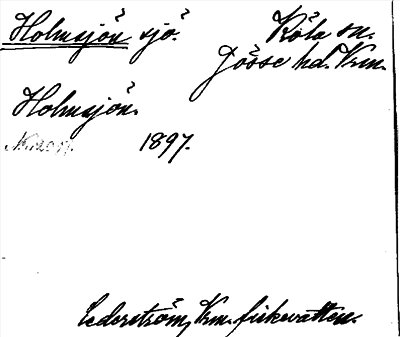 Holmsjön sjö. Köla sn.
Jösse hd. Vrm.
Holmsjön.
1897.
Cederström, Vrm. fiskevatten.